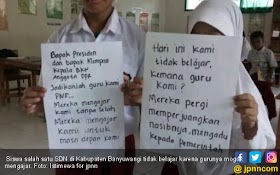 Bapak Presiden
dan bapak Menpan
Kepala BKN
Anggota DPR
Jadikanlah guru kami
PNS...
Mereka mengajar
kami tanpa lelah
Mereka mengajar
kami untuk
masa depan kami
Hari ini kami
tidak belajar,
Kemana guru
kami?
Mereka pergi
memperjuangkan
nasibnya, mengadu
kepada pemerintah
Siswa salah satu SDN di Kabupaten Banyuwangi tidak belajar karena gurunya mogok
mengajar. Foto: Istimewa for jpnn
jpnn